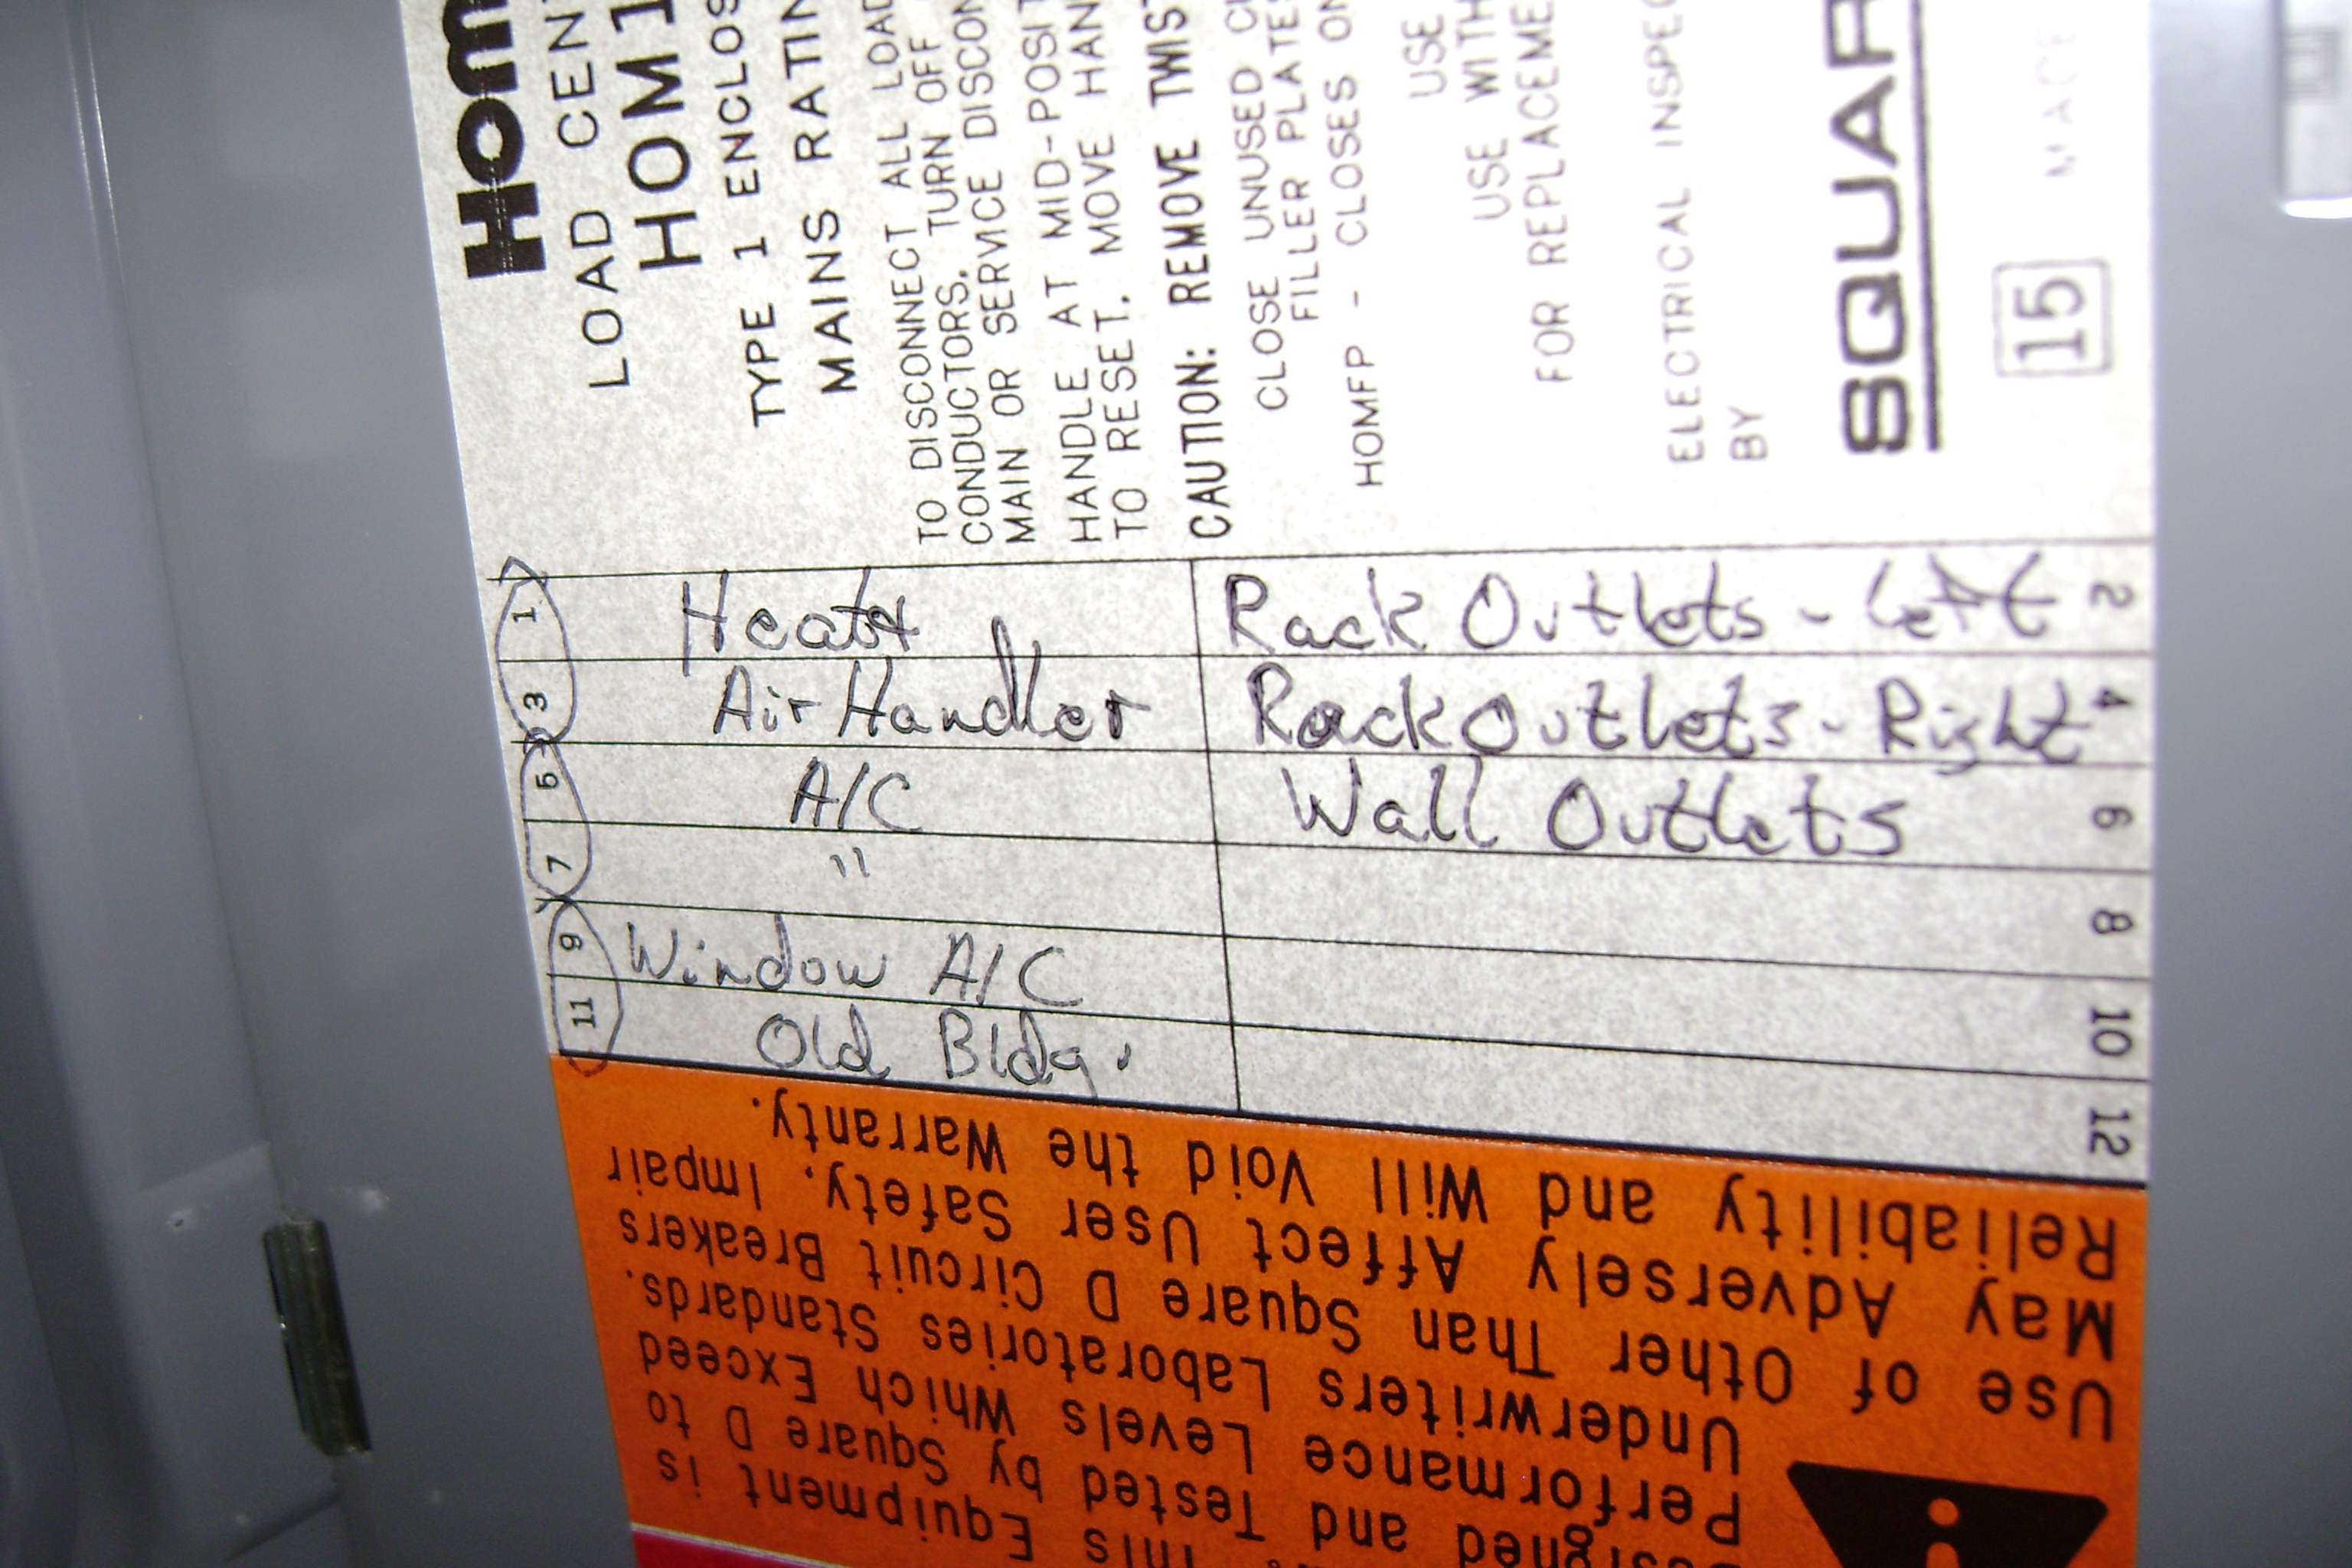 Hom
LOAD CEN
HOM1
TYPE 1 ENCLOS
MAINS RATIN
TO DISCONNECT ALL LOAD
CONDUCTORS, TURN OFF
MAIN OR SERVICE DISCON
HANDLE AT MID-POSIT
TO RESET, MOVE HAN
CAUTION: REMOVE TWIS
CLOSE UNUSED CI
FILLER PLATES
HOMFP - CLOSES ON
USE
USE WITH
FOR REPLACEME
ELECTRICAL INSPEC
BY
SQUAR
15
1 Heat
Rack Outlets - Left 2
3 Air Handler
Rack Outlets - Right 4
5 A/C
Wall Outlets 6
7 "
8
9 Window A/C
10
11 Old Bldg.
12
This Equipment is
signed and Tested by Square D to
Performance Levels Which Exceed
Underwriters Laboratories Standards.
Use of Other Than Square D Circuit Breakers
May Adversely Affect User Safety, Impair
Reliability and Will Void the Warranty.